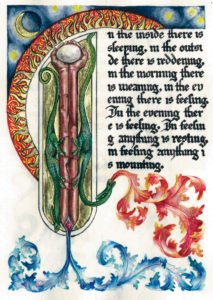 In the inside there is
sleeping, in the outsi
de there is reddening,
in the morning there
is meaning, in the ev
ening there is feeling.
In the evening ther
e is feeling. In feelin
g anything is resting,
in feeling anything i
s mounting.